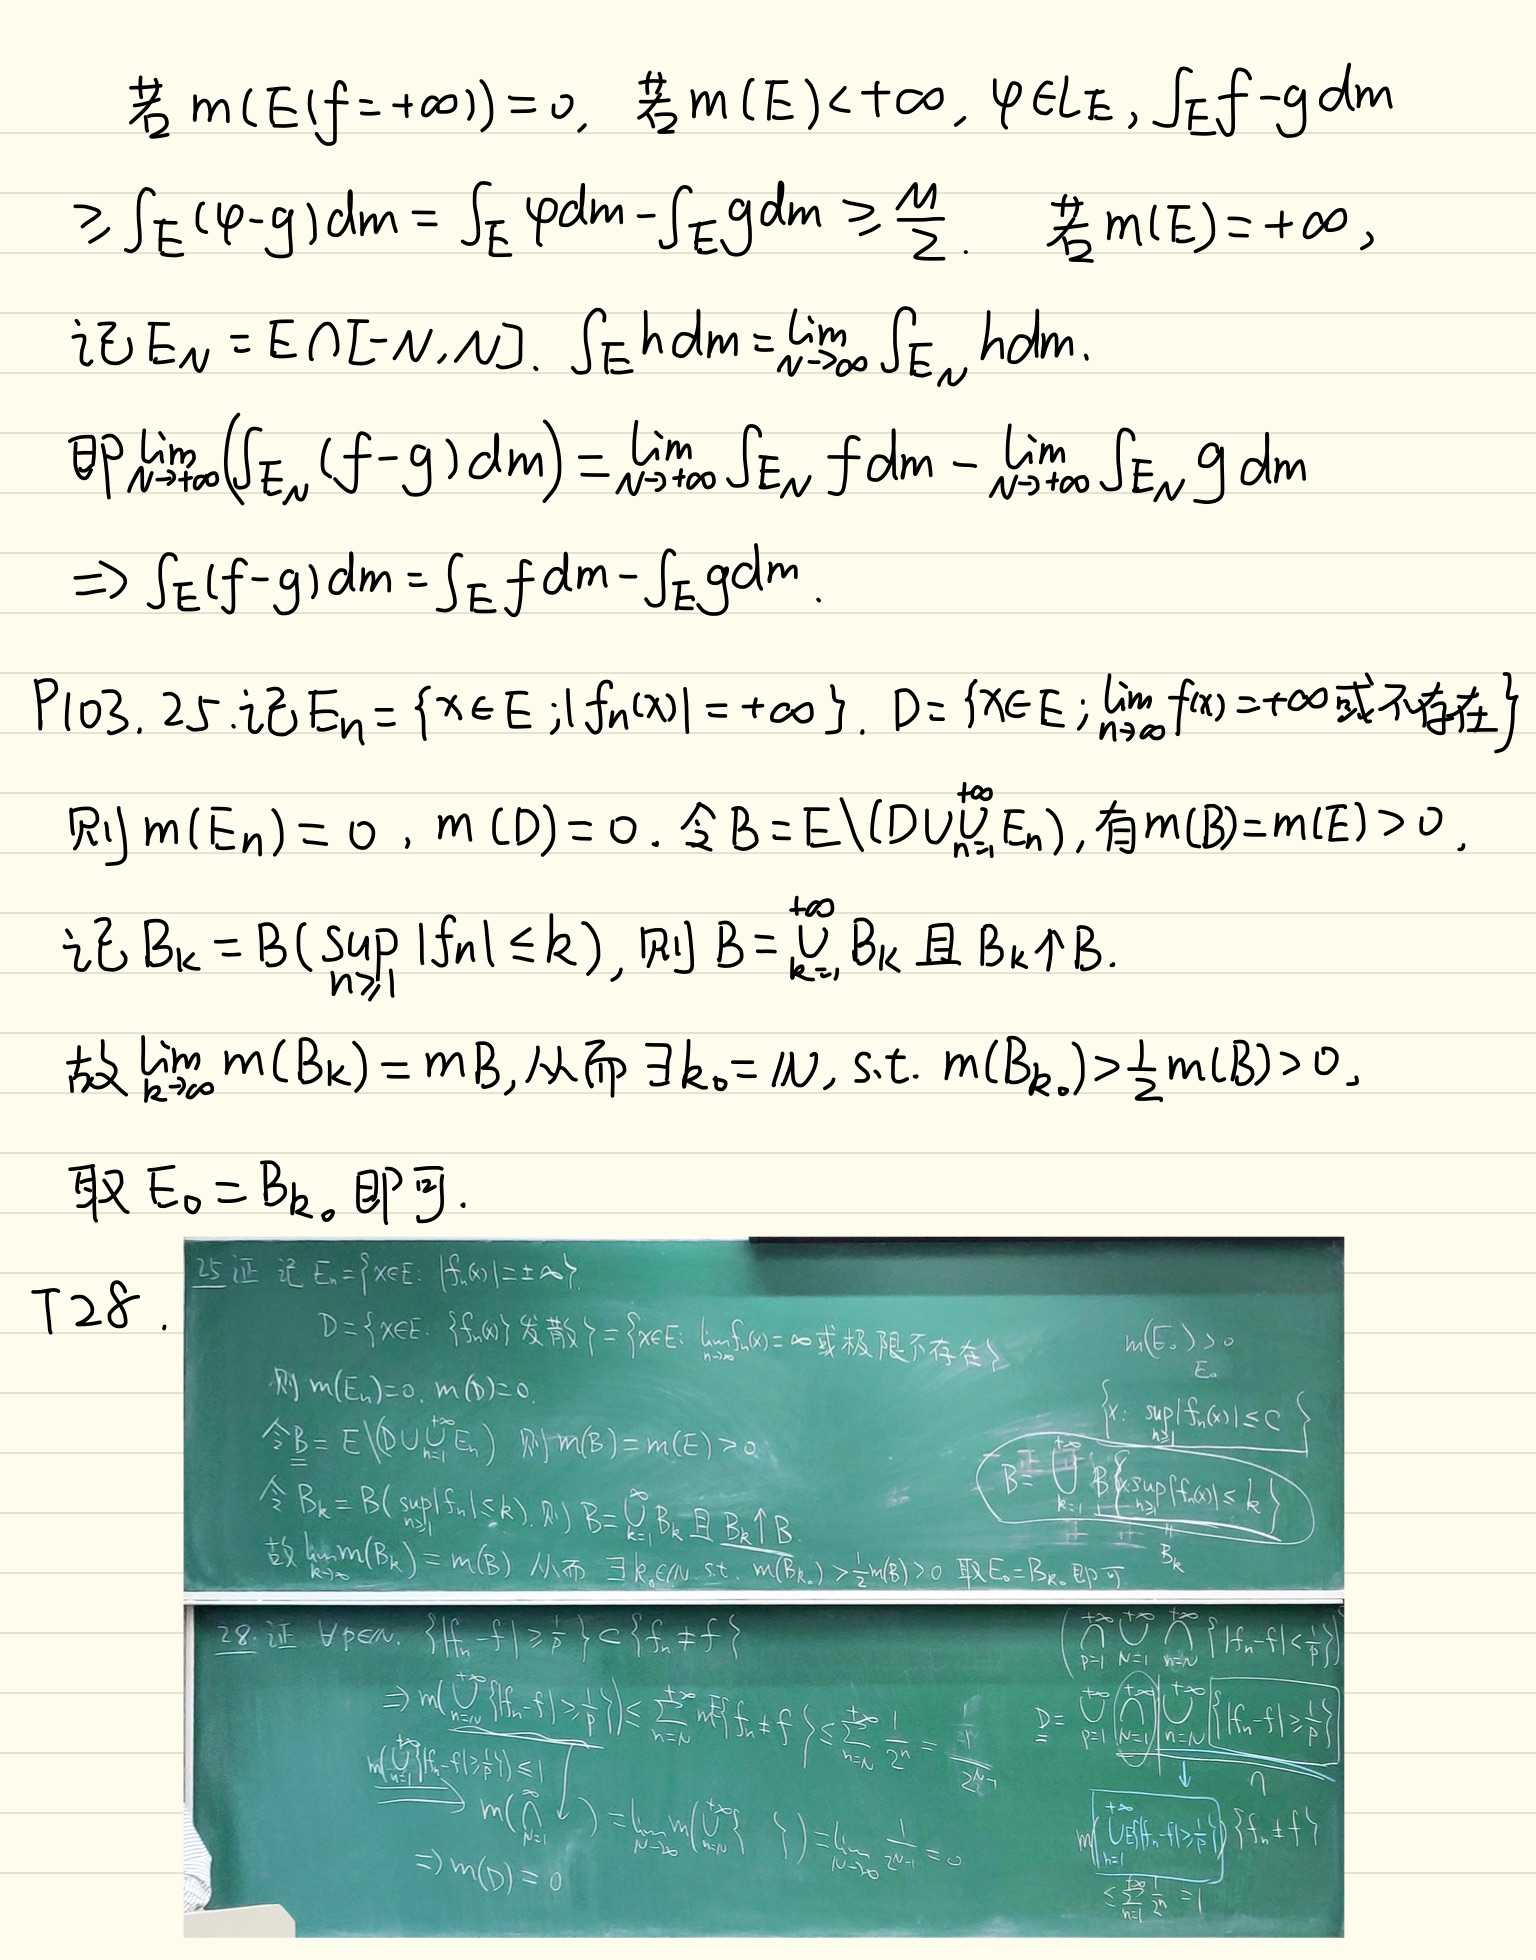 若 m(E(f=+∞))=0, 若 m(E)<+∞, φ∈L_E, ∫_E f-g dm
≥∫_E (φ-g)dm = ∫_E φdm-∫_E gdm ≥ M/2. 若 m(E)=+∞,
记 E_N = E∩[-N,N]. ∫_E hdm = lim_{N→∞} ∫_{E_N} hdm.
即 lim_{N→+∞} (∫_{E_N} (f-g)dm) = lim_{N→+∞} ∫_{E_N} fdm - lim_{N→+∞} ∫_{E_N} g dm
⇒ ∫_E (f-g)dm = ∫_E fdm-∫_E gdm.
P103. 25. 记 E_n = {x∈E; |f_n(x)| = +∞}. D = {x∈E; lim_{n→∞} f(x) = +∞ 或不存在}
则 m(E_n) = 0, m(D) = 0. 令 B = E\(D∪⋃_{n=1}^{+∞} E_n), 有 m(B)=m(E)>0,
记 B_k = B(sup_{n≥1} |f_n| ≤ k), 则 B = ⋃_{k=1}^{+∞} B_k 且 B_k↑B.
故 lim_{k→∞} m(B_k) = mB, 从而 ∃k_0 = ℕ, s.t. m(B_{k_0}) > 1/2 m(B) > 0,
取 E_0 = B_{k_0} 即可.
T28.
25 证 记 E_n={x∈E: |f_n(x)|=±∞}
D={x∈E: {f_n(x)} 发散}={x∈E: lim_{n→∞} f_n(x)=∞ 或极限不存在}
则 m(E_n)=0. m(D)=0.
令 B = E\(D∪⋃_{n=1}^{+∞} E_n) 则 m(B)=m(E)>0
令 B_k = B(sup_{n≥1}|f_n|≤k). 则 B=⋃_{k=1}^{∞} B_k 且 B_k↑B.
故 lim_{k→∞} m(B_k)=m(B) 从而 ∃k_0∈ℕ s.t. m(B_{k_0})>1/2 m(B)>0 取 E_0=B_{k_0} 即可
m(E_0)>0
E_0
{x: sup_{n≥1}|f_n(x)|≤C}
B=⋃_{k=1}^{+∞} B{x: sup_{n≥1}|f_n(x)|≤k}
B_k
28. 证 ∀p∈ℕ. {|f_n-f|≥1/p}⊂{f_n≠f}
⇒ m(⋃_{n=N}^{+∞}{|f_n-f|≥1/p}) ≤ ∑_{n=N}^{+∞} mE{f_n≠f} ≤ ∑_{n=N}^{+∞} 1/2^n = 1/2^{N-1}
m(⋃_{n=1}^{+∞}{|f_n-f|≥1/p})≤1
m(⋂_{N=1}^{∞} ) = lim_{N→∞} m(⋃_{n=N}^{+∞}{ }) = lim_{N→∞} 1/2^{N-1} = 0
⇒ m(D) = 0
(⋂_{p=1}^{+∞} ⋃_{N=1}^{+∞} ⋂_{n=N}^{+∞} {|f_n-f|<1/p})
D = ⋃_{p=1}^{+∞} ⋂_{N=1}^{+∞} ⋃_{n=N}^{+∞} {|f_n-f|≥1/p}
∩
m(⋃_{n=1}^{+∞} E{|f_n-f|≥1/p}) {f_n≠f}
≤ ∑_{n=1}^{+∞} 1/2^n = 1